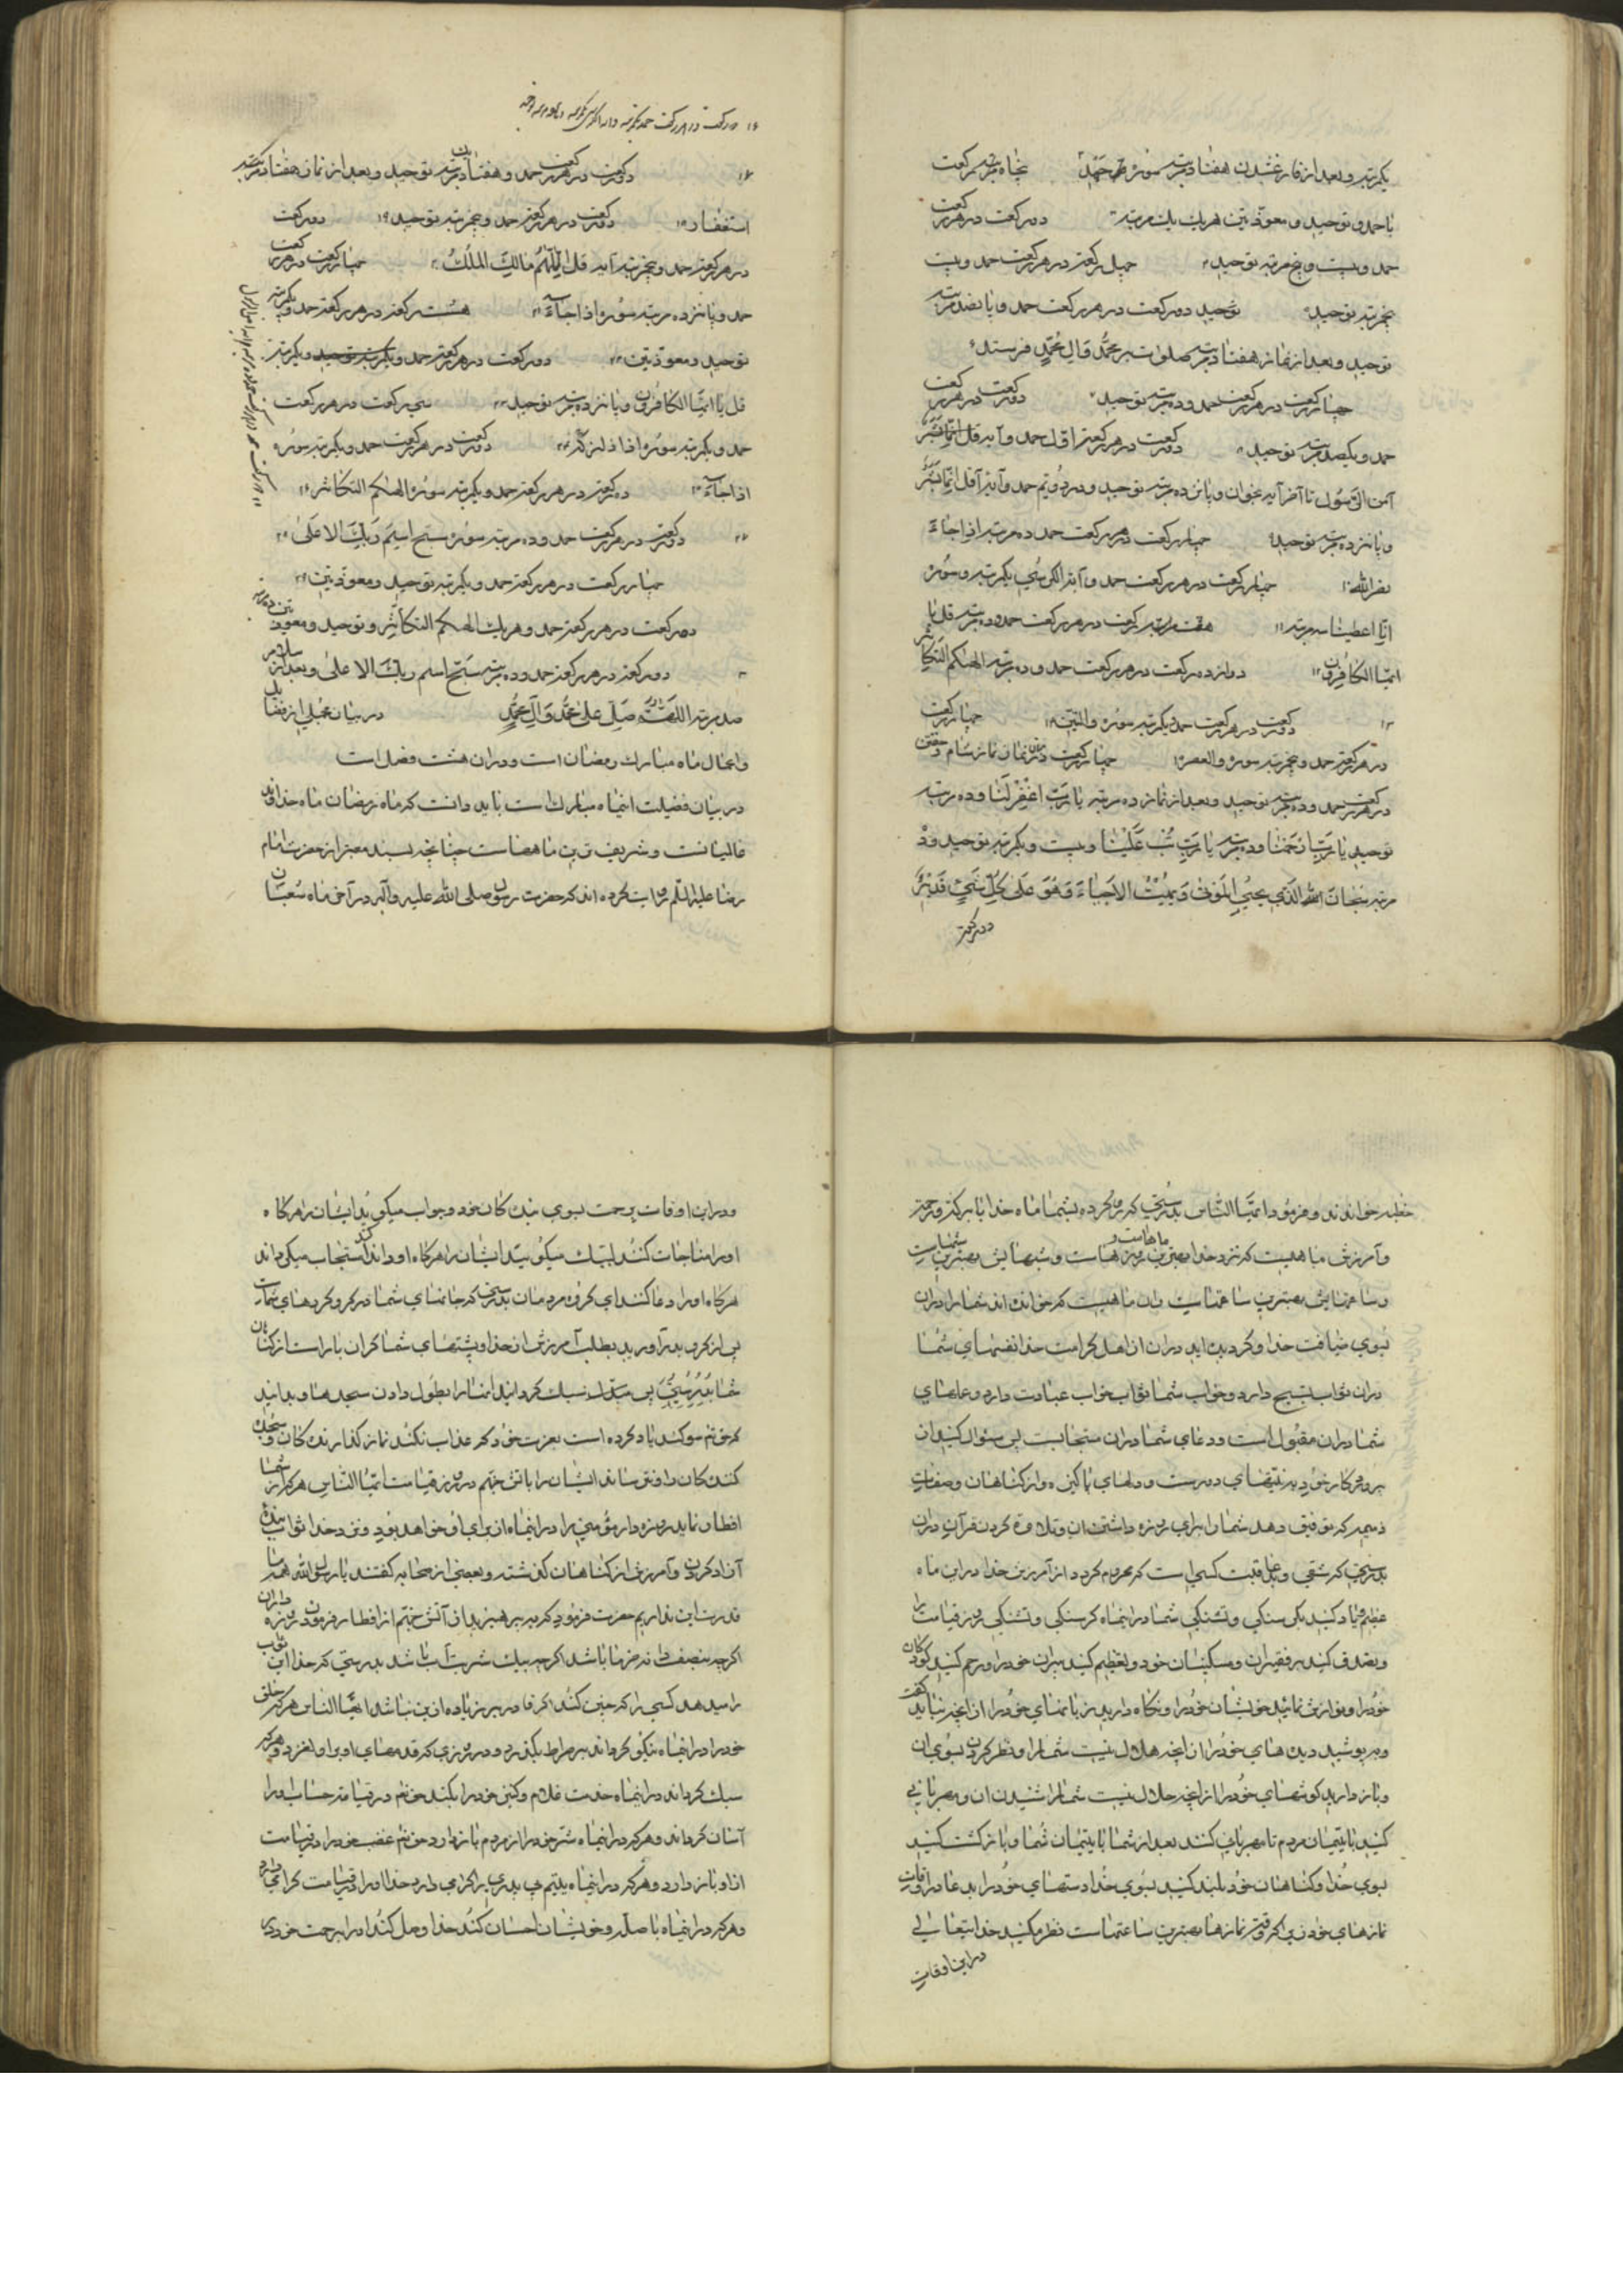 یکمرتبه و بعد از فارغ شدن هفتاد مرتبه سوره جحد پنجاه رکعت
با حمد و توحید و معوذتین هر یک یک مرتبه دو رکعت در هر رکعت
حمد و بیست و پنج مرتبه توحید چهل رکعت در هر رکعت حمد و بیست
پنج مرتبه توحید توحید دو رکعت در هر رکعت حمد و پانصد مرتبه
توحید و بعد از نماز هفتاد مرتبه صلوات بر محمد و آل محمد فرستد
چهار رکعت در هر رکعت حمد و ده مرتبه توحید دو رکعت در هر رکعت
حمد و یکصد مرتبه توحید دو رکعت در هر رکعت اول حمد و آیه قل انما بشر
آمن الرسول تا آخر آیه بخوان و پانزده مرتبه توحید و در دویم حمد و آیه قل انما بشر
و پانزده مرتبه توحید چهار رکعت در هر رکعت حمد ده مرتبه اذا جاء
نصر الله ۱۰ چهار رکعت در هر رکعت حمد و آیة الکرسی یکمرتبه و سوره
انا اعطینا سه مرتبه ۱۱ رکعت در هر رکعت حمد و ده مرتبه قل یا
ایها الکافرون ۱۲ دوازده رکعت در هر رکعت حمد و ده مرتبه الهیکم التکاثر
۱۳ دو رکعت در هر رکعت حمد و یکمرتبه سوره والتین ۱۴ چهار رکعت
در هر رکعت حمد و پنج مرتبه سوره والعصر چهار رکعت در میان نماز شام و خفتن
در هر رکعت حمد و ده مرتبه توحید و بعد از نماز ده مرتبه یا رب اغفر لنا و ده مرتبه
توحید یا رب ارحمنا و ده مرتبه یا رب تب علینا و بیست و یکمرتبه توحید و ده
مرتبه سبحان الله الذی یحیی الموتی و یمیت الاحیاء و هو علی کل شیء قدیر
دو رکعت
۱۶ دو رکعت در هر رکعت حمد یکمرتبه
۱۷ دو رکعت در هر رکعت حمد و هفتاد مرتبه توحید و بعد از نماز هفتاد مرتبه
استغفار ۱۸ دو رکعت در هر رکعت حمد و پنج مرتبه توحید ۱۹ دو رکعت
در هر رکعت حمد و پنج مرتبه آیه قل اللهم مالک الملک ۲۰ چهار رکعت در هر رکعت
حمد و پانزده مرتبه سوره اذا جاء ۲۱ هشت رکعت در هر رکعت حمد و یکمرتبه
توحید و معوذتین دو رکعت در هر رکعت حمد و یکمرتبه توحید و یکمرتبه
قل یا ایها الکافرون و پانزده مرتبه توحید سی رکعت در هر رکعت
حمد و یکمرتبه سوره اذا زلزلت دو رکعت در هر رکعت حمد و یکمرتبه سوره
اذا جاء دو رکعت در هر رکعت حمد و یکمرتبه سوره الهیکم التکاثر
دو رکعت در هر رکعت حمد و ده مرتبه سوره سبح اسم ربک الاعلی
چهار رکعت در هر رکعت حمد و یکمرتبه توحید و معوذتین
دو رکعت در هر رکعت حمد و هر یک الهیکم التکاثر و توحید و معوذتین ده مرتبه
دو رکعت در هر رکعت حمد و ده مرتبه سبح اسم ربک الاعلی و بعد از سلام
صد مرتبه اللهم صل علی محمد و آل محمد در بیان مجملی از فضایل
و اعمال ماه مبارک رمضان است و در آن هشت فصل است
در بیان فضیلت اینماه مبارک است باید دانست که ماه رمضان ماه خداوند
عالمیانست و شریف ترین ماهها است چنانچه بسند معتبر از حضرت امام
رضا علیه السلام روایت کرده اند که حضرت رسول صلی الله علیه و آله در آخر ماه شعبان
خطبه خواندند و فرمود ایها الناس بدرستی که رو کرده بشما ماه خدا با برکت و رحمت
و آمرزش ماهیست که نزد خدا بهترین ماهاست و روزهاست و شبهایش بهترین شبهاست
و ساعتهایش بهترین ساعتهاست و آن ماهیست که خوانده اند شما را در آن
بسوی ضیافت خدا و گردیده اید در آن از اهل کرامت خدا نفسهای شما
در آن ثواب تسبیح دارد و خواب شما ثواب عبادت دارد و عملهای
شما در آن مقبول است و دعای شما در آن مستجابست پس سئوال کنید از
پروردگار خود به نیتهای درست و دلهای پاکیزه از گناهان و صفات
ذمیمه که توفیق دهد شما را برای روزه داشتن آن و تلاوة کردن قرآن در آن
بدرستی که شقی و بد عاقبت کسی است که محروم گردد از آمرزش خدا در این ماه
عظیم و یاد کنید بگرسنگی و تشنگی شما در اینماه گرسنگی و تشنگی روز قیامت را
و تصدق کنید بر فقیران و مسکینان خود و تعظیم کنید پیران خود را و رحم کنید کودکان
خود را و نوازش نمائید خویشان خود را و نگاه دارید زبانهای خود را از آنچه نباید گفت
و بپوشید دیده های خود را از آنچه حلال نیست شما را نظر کردن بسوی آن
و باز دارید گوشهای خود را از آنچه حلال نیست شما را شنیدن آن و مهربانی
کنید با یتیمان مردم تا مهربانی کنند بعد از شما با یتیمان شما و بازگشت کنید
بسوی خدا از گناهان خود بلند کنید بسوی خدا دستهای خود را بدعا در اوقات
نمازهای خود زیرا که وقت نمازها بهترین ساعتهاست نظر میکند خدایتعالی
در این اوقات
در این اوقات برحمت بسوی بندگان خود و جواب میگوید ایشان را هرگاه
او را مناجات کنند لبیک میگوید ایشان را هرگاه او را ندا کنند مستجاب میگرداند
هرگاه او را دعا کنند ای گروه مردمان بدرستی که جانهای شما در گرو کردهای شماست
پس از گرو بدر آورید بطلب آمرزش از خدا و پشتهای شما گران بار است از گناهان
شما بدرستی پس سبک گردانید آنها را بطول دادن سجدها و بدانید
که حق تعالی سوگند یاد کرده است بعزت خود که عذاب نکند نماز گذارندگان و سجده
کنندگان را و نترساند ایشان را باتش جهنم در روز قیامت ایها الناس هر که از شما
افطار نماید روزه دار مؤمنی را در اینماه از برای او خواهد بود نزد خدا ثواب بنده
آزاد کردن و آمرزش از گناهان گذشته و بعضی از صحابه گفتند یا رسول الله همه ما
قدرت این نداریم حضرت فرمود که بپرهیزید از آتش جهنم از افطار فرمودن روزه داران
اگرچه بنصف دانه خرما باشد اگرچه بیک شربت آب باشد بدرستی که خدا این ثواب
را میدهد کسی را که چنین کند اگر قادر بر زیاده از این نباشد ایها الناس هر که خلق
خود را در اینماه نیکو گرداند بر صراط بگذرد در روزی که قدمهای او بر او لغزد و هر که
سبک گرداند در اینماه خدمت غلام و کنیز خود را بکند حق تعالی در قیامت حساب او را
آسان گرداند و هر که در اینماه شر خود را از مردم باز دارد حق تعالی غضب خود را در قیامت
از او باز دارد و هر که در اینماه یتیم بی پدری را گرامی دارد خدا او را در قیامت گرامی دارد
و هر که در اینماه با صله و خویشان احسان کند خدا وصل کند او را برحمت خود